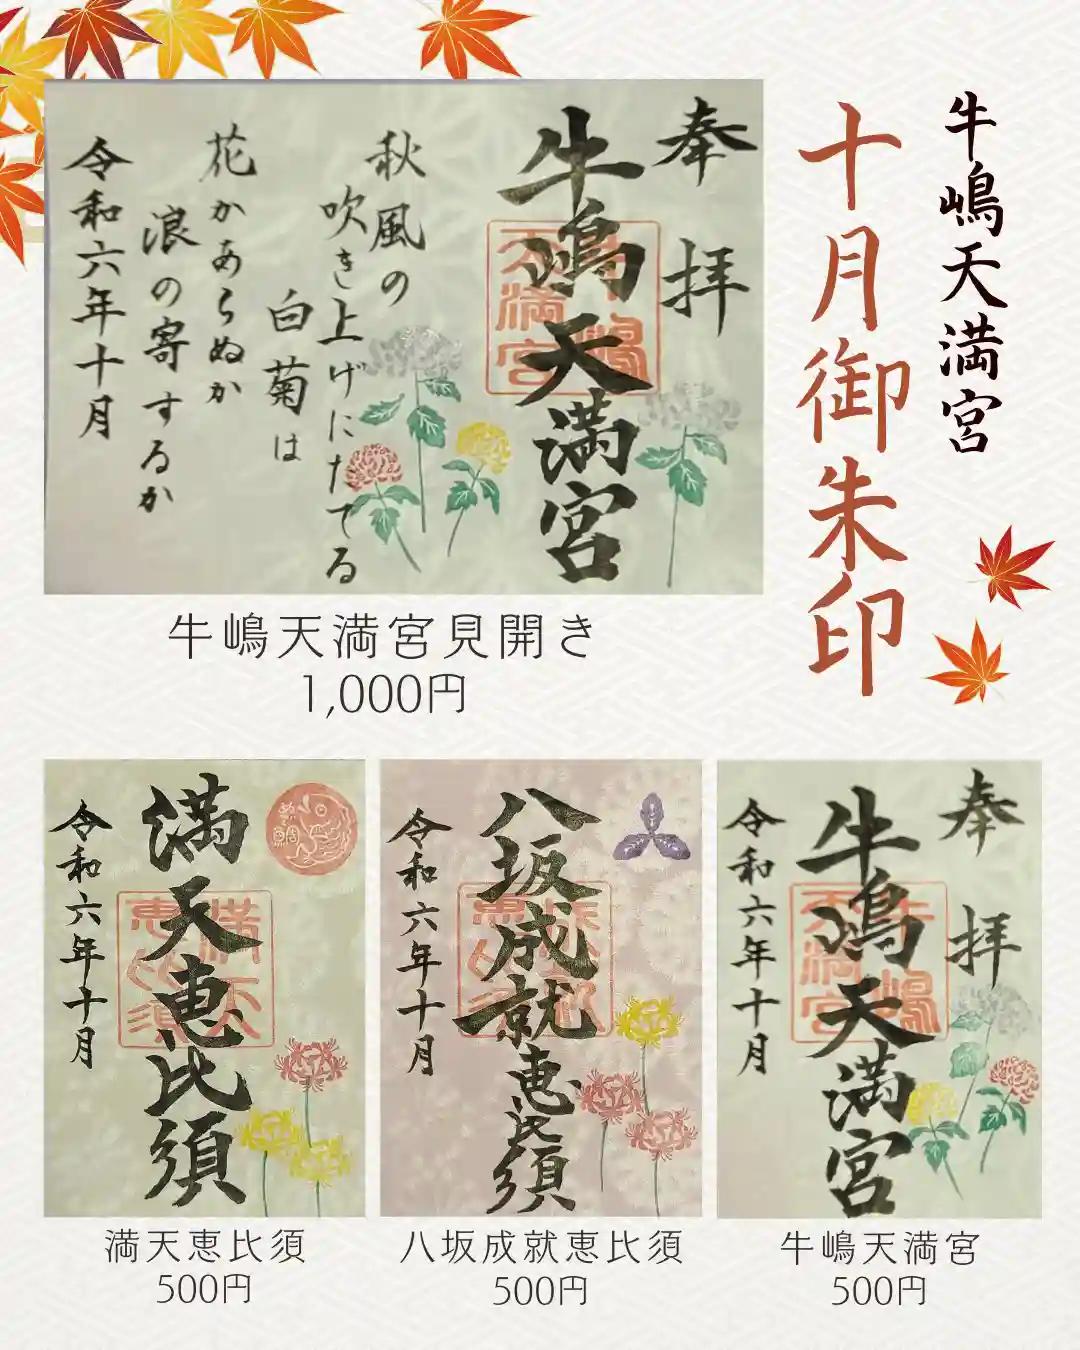 牛嶋天満宮
十月御朱印
奉拝
牛嶋天満宮
牛嶋天満宮
秋風の
吹き上げにたてる
白菊は
花かあらぬか
浪の寄するか
令和六年十月
牛嶋天満宮見開き
1,000円
満天恵比須
満天恵比須
令和六年十月
満天恵比須
500円
八坂成就恵比須
令和六年十月
八坂成就恵比須
500円
奉拝
牛嶋天満宮
牛嶋天満宮
令和六年十月
牛嶋天満宮
500円